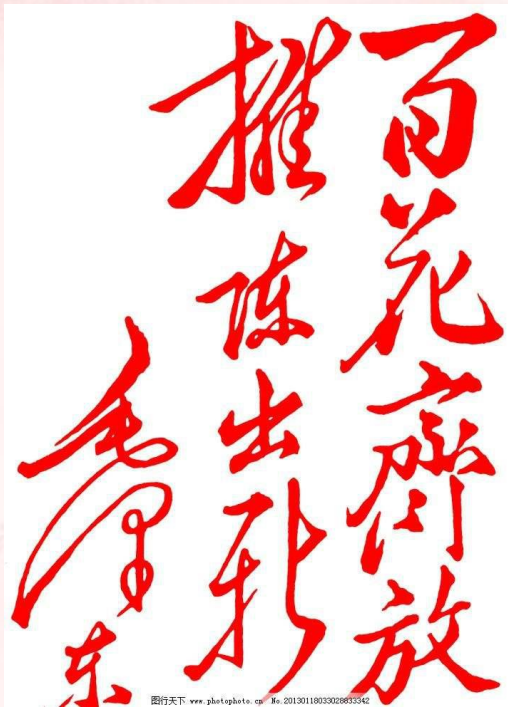 百花齊放
推陈出新
毛泽东
图行天下 www.photophoto.cn No.20130118033028833342